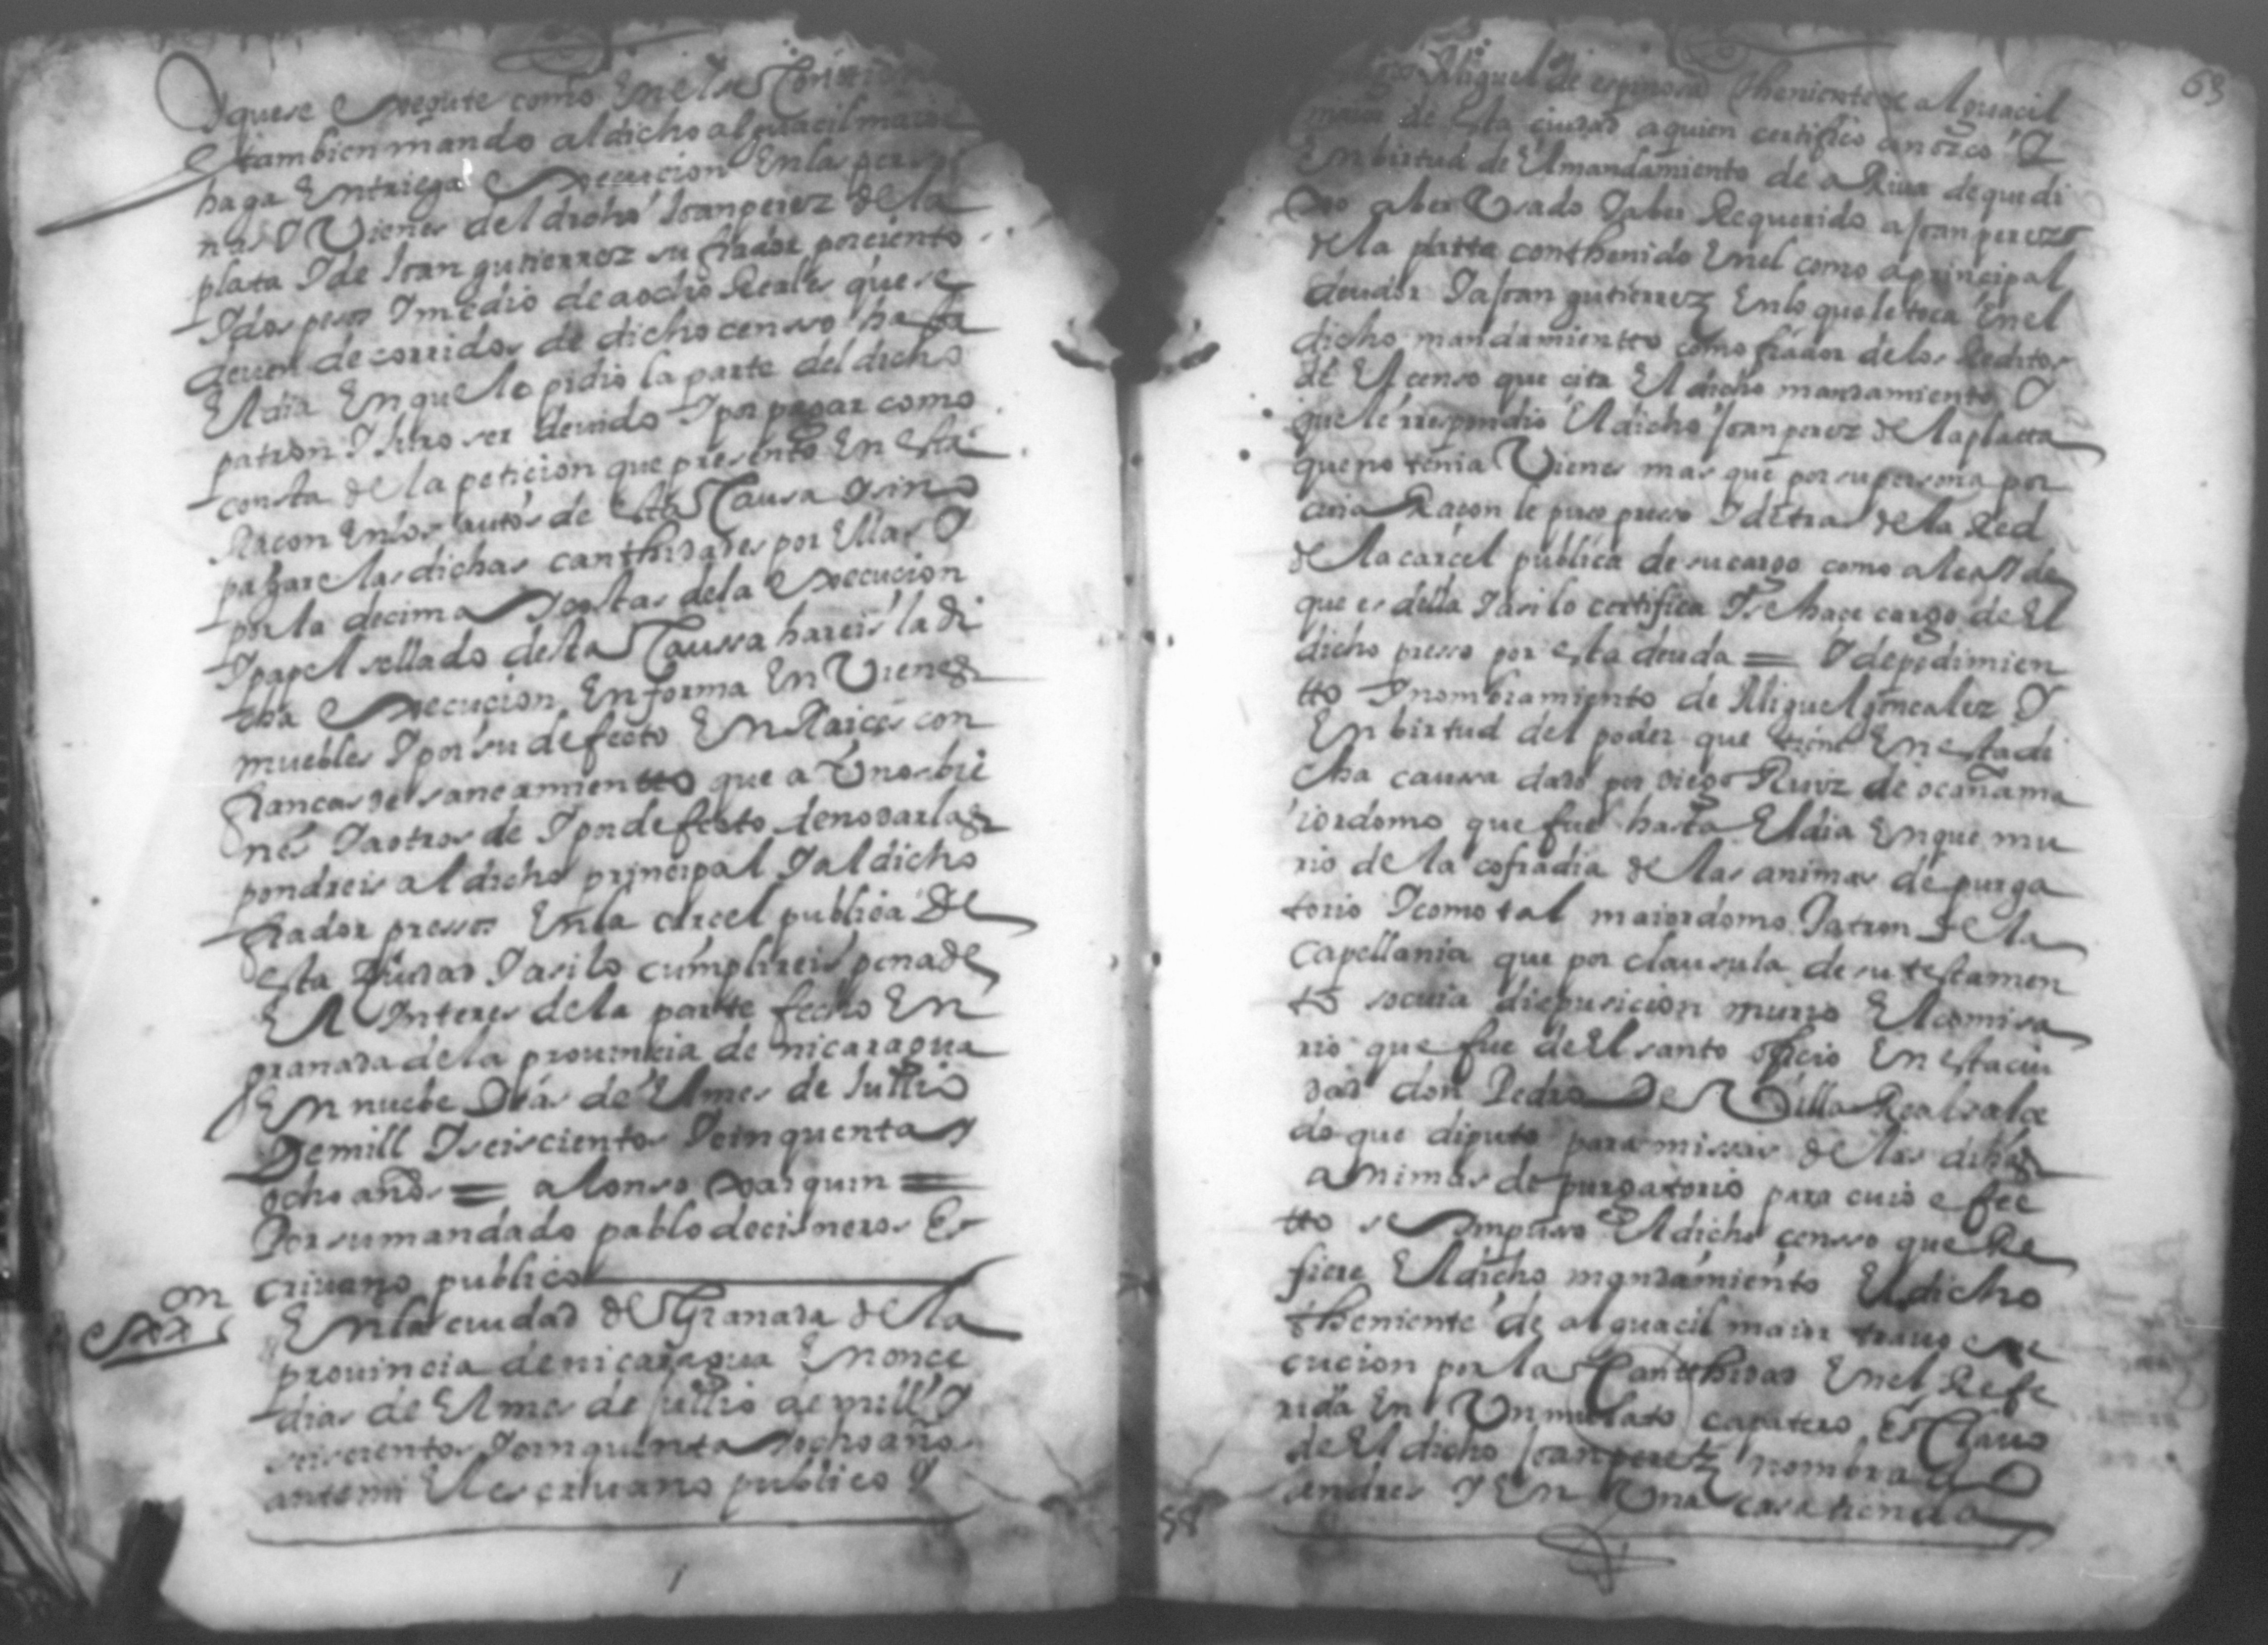 I que se execute como En el se Contiene
E tambien mando al dicho alguacil maior
haga Entriega Execucion En las perso
nas I Vienes del dicho Joan perez de la
plata I de Joan gutierrez su fiador por ciento
I dos pesos I medio de a ocho Reales que se
deuen de corridos de dicho censso hasta
El dia En que lo pidio la parte del dicho
patron I Juro ser deuido I por pagar como
consta de la peticion que presento En esta
Racon En los autos de esta Causa I sino
pagare las dichas canthidades por Ellas I
por la decima I costas de la Execucion
I papel sellado desta Caussa hareis la di
cha Execucion En forma En Vienes
muebles I por su defecto En Raices con
fiancas de saneamientto que a Unos bie
nes I a otros de I por defecto de no darlas
pondreis al dicho principal I al dicho
fiador pressos En la carcel publica De
esta Ziudad I asi lo cumplireis pena de
El Ynteres de la partte fecho En
granada de la prouincia de nicaragua
En nuebe Dias de El mes de Jullio
De mill I seiscientos I cinquenta y
ocho años = alonso Xarquin =
Por su mandado pablo de cisneros Es
criuano publico
exxon
En la ciudad de Granada de la
prouincia de nicaragua En once
dias de El mes de Jullio de mill I
seiscientos I cinquenta I ocho años
ante mi El escriuano publico I
63
Miguel de espinosa theniente de alguacil
maior de Esta ciudad a quien certifico conozco I
En birtud de El mandamiento de aRiua de que di
xo aber Usado I aber Requerido a Joan perez
de la platta conthenido En el como a principal
deudor I a Joan gutierrez En lo que le toca En el
dicho mandamientto como fiador de los Reditos
de El censo que cita El dicho mandamiento I
que le rrespondio El dicho Joan perez de la platta
que no tenia Vienes mas que por su persona por
cuia Racon le puso presso I detras de la Red
de la carcel publica de su cargo como alcaide
que es della I asi lo certifica I se hace cargo de El
dicho presso por esta deuda = I de pedimien
tto I nombramiento de Miguel goncalez I
En birtud del poder que tiene En esta di
cha caussa dado por diego Ruiz de ocaña ma
iordomo que fue hasta El dia En que mu
rio de la cofradia de las animas de purga
torio I como tal maiordomo Patron de la
Capellania que por clausula de su testamen
to so cuia dispusicion murio El comisa
rio que fue de El santo oficio En esta ciu
dad don Pedro De Villa Real salce
do que diputo para missas de las dichas
animas de purgatorio para cuio efec
tto se Ympuso El dicho censso que Re
fiere El dicho mandamiento El dicho
theniente de alguacil maior trauo exe
cucion por la Canthidad En el Refe
rida En Un mulato capatero Esclauo
de El dicho Joan perez nombrado
andres I En Una casa tienda
58